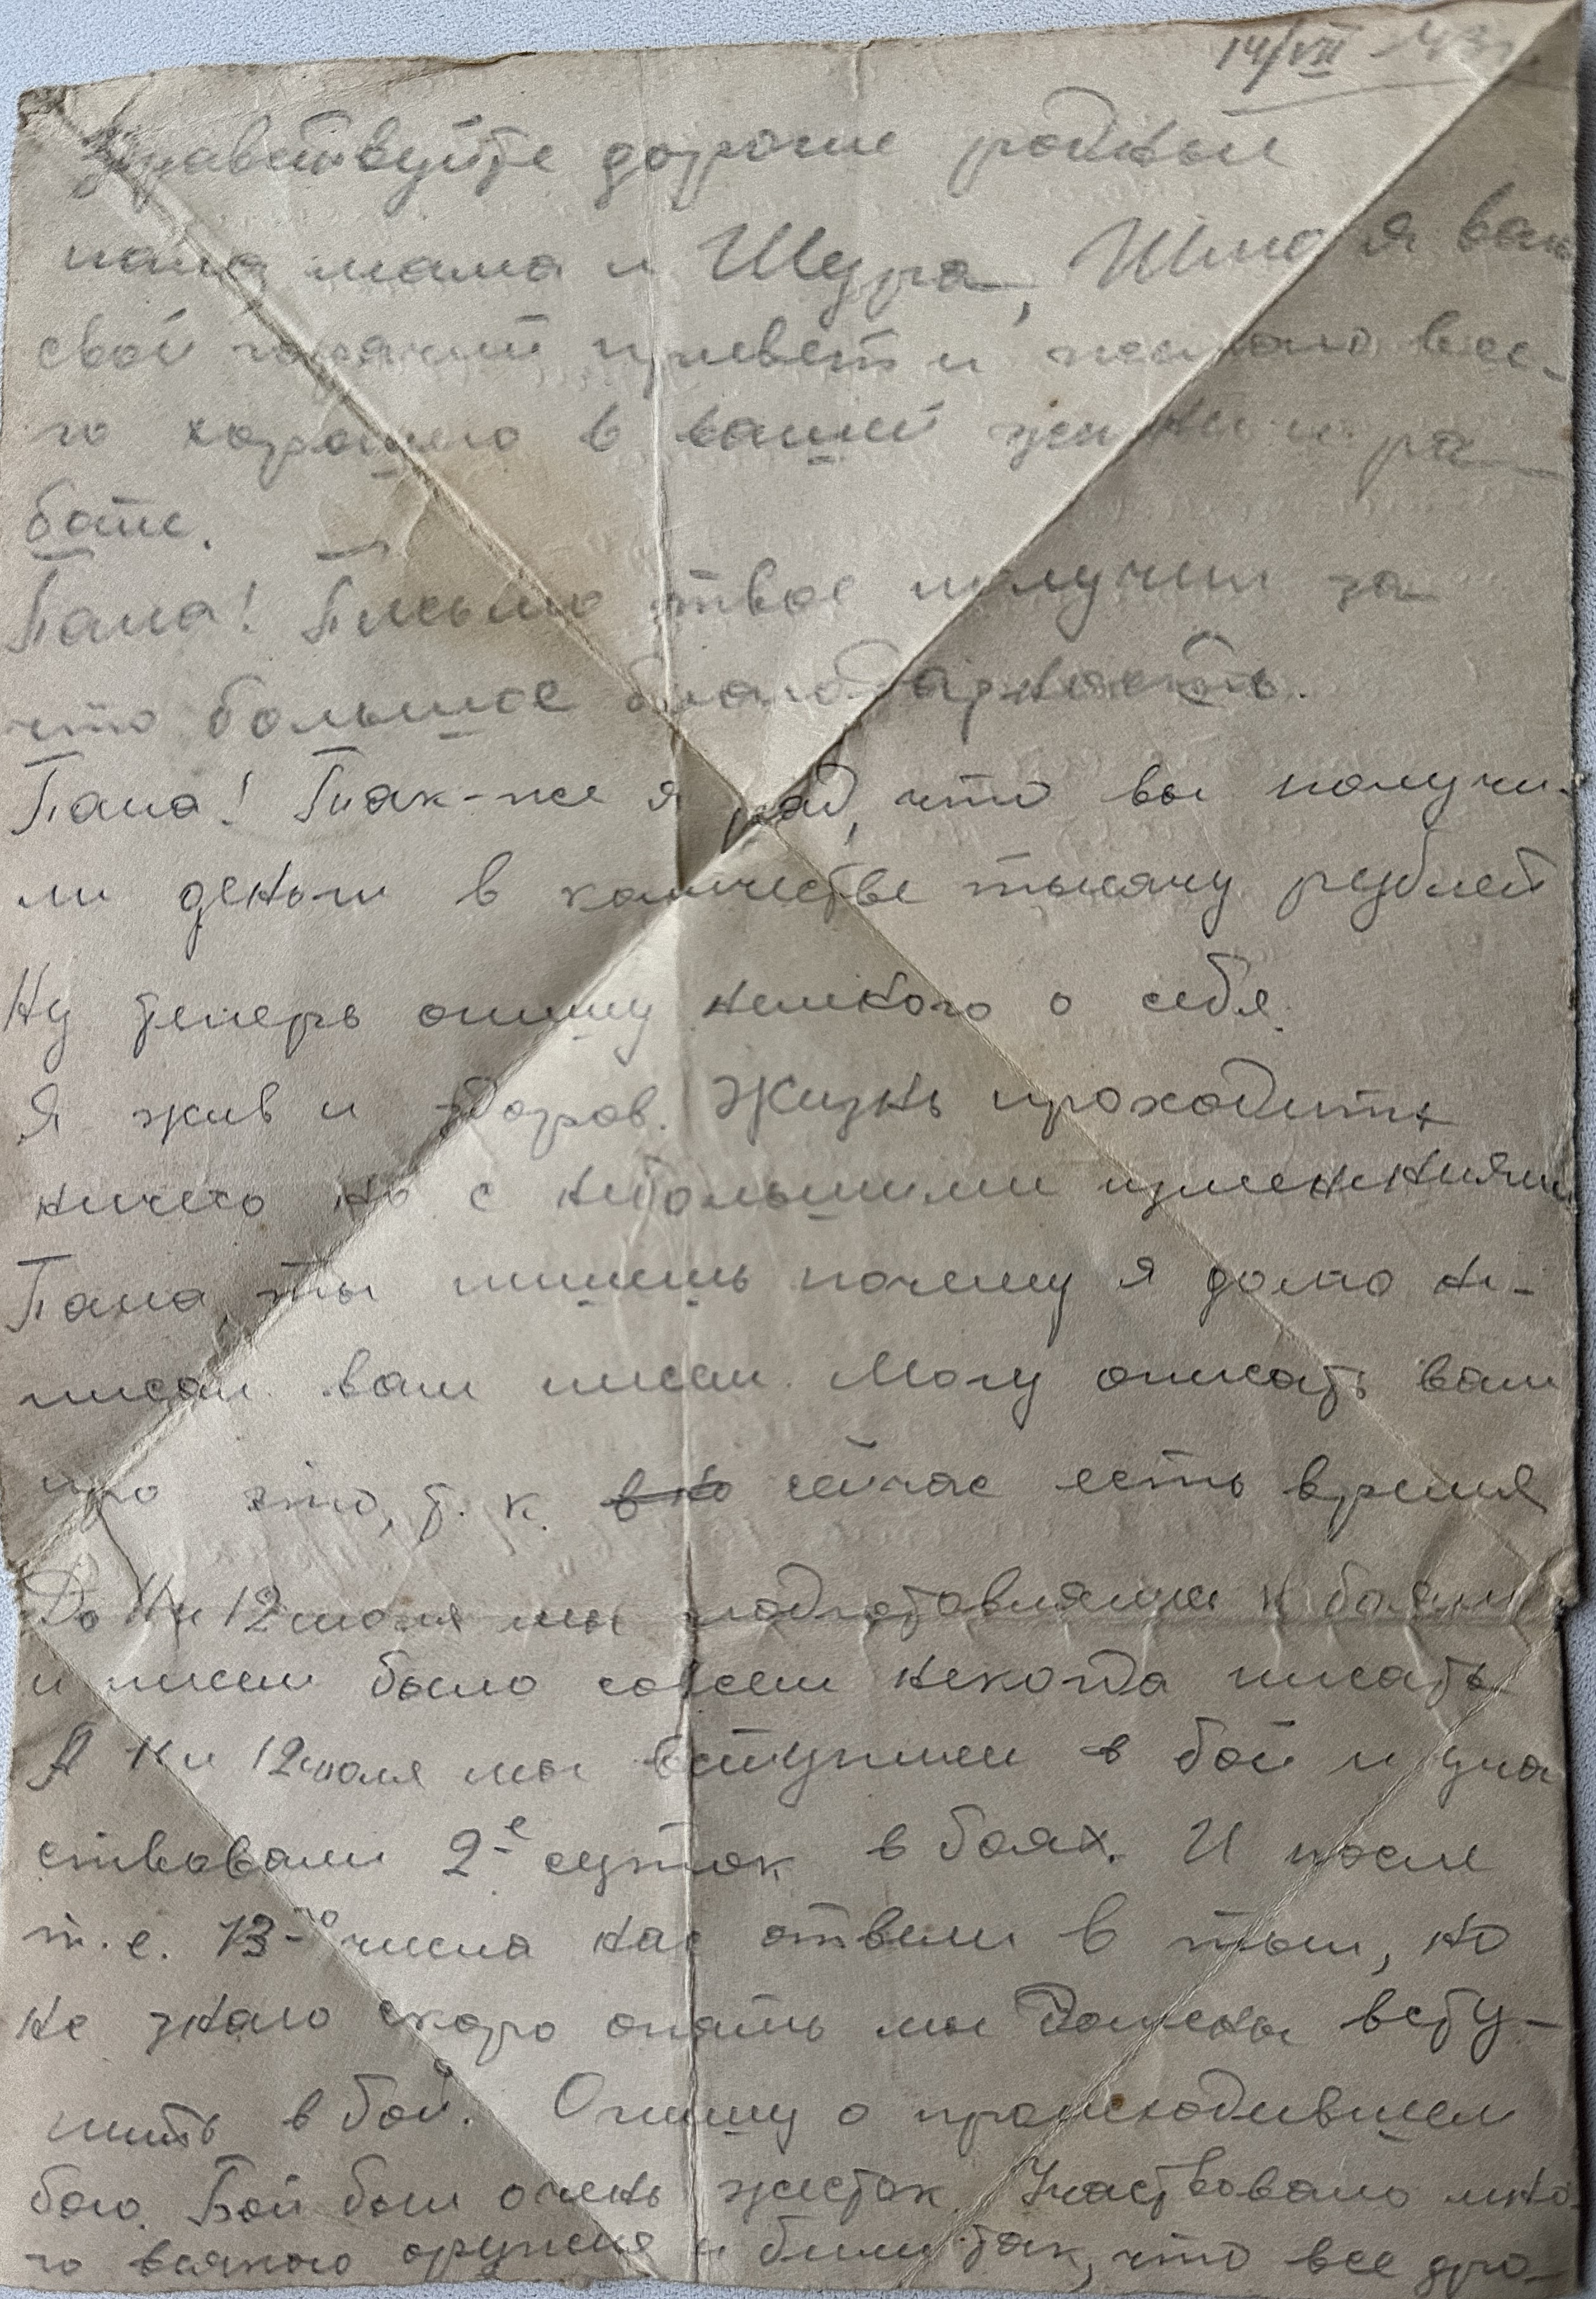 14/VII 43г.
Здравствуйте дорогие родные
папа мама и Шура, Шлю я вам
свой горячий привет и желаю все-
го хорошего в вашей жизни и ра-
боте.
Папа! Письмо твое получил за
что большое благодарность.
Папа! Так-же я рад, что вы получи-
ли деньги в количестве тысячу рублей
Ну теперь опишу немного о себя.
Я жив и здоров. Жизнь проходить
ничего но с небольшими изменениями
Папа, ты пишешь почему я долго не-
писал вам писем. Могу описать вам
про это, т. к. сейчас есть время
До 11 и 12 июля мы подготовлялись к боям
и писем было совсем некогда писать
А 11 и 12 июля мы вступили в бой и уча
ствовали 2-е суток в боях. И после
т. е. 13-го числа нас отвели в тыл, но
не знаю скоро опять мы должны всту-
пить в бой. Опишу о происходившем
бою. Бой был очень жесток. Участвовало мно-
го всякого оружия и били так, что все дро-